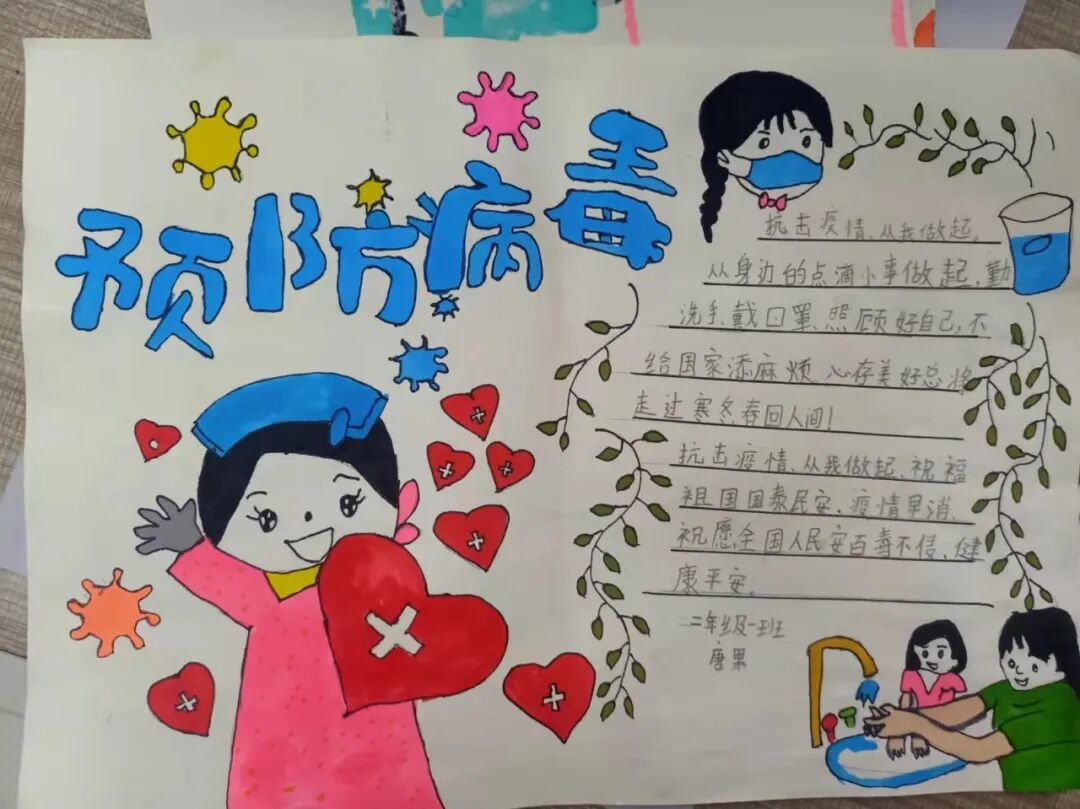 预防病毒
抗击疫情、从我做起。
从身边的点滴小事做起，勤
洗手、戴口罩、照顾好自己，不
给国家添麻烦，心存美好总将
走过寒冬春回人间！
抗击疫情、从我做起、祝福
祖国国泰民安，疫情早消、
祝愿全国人民安百毒不侵、健
康平安。
二年级一班
唐果